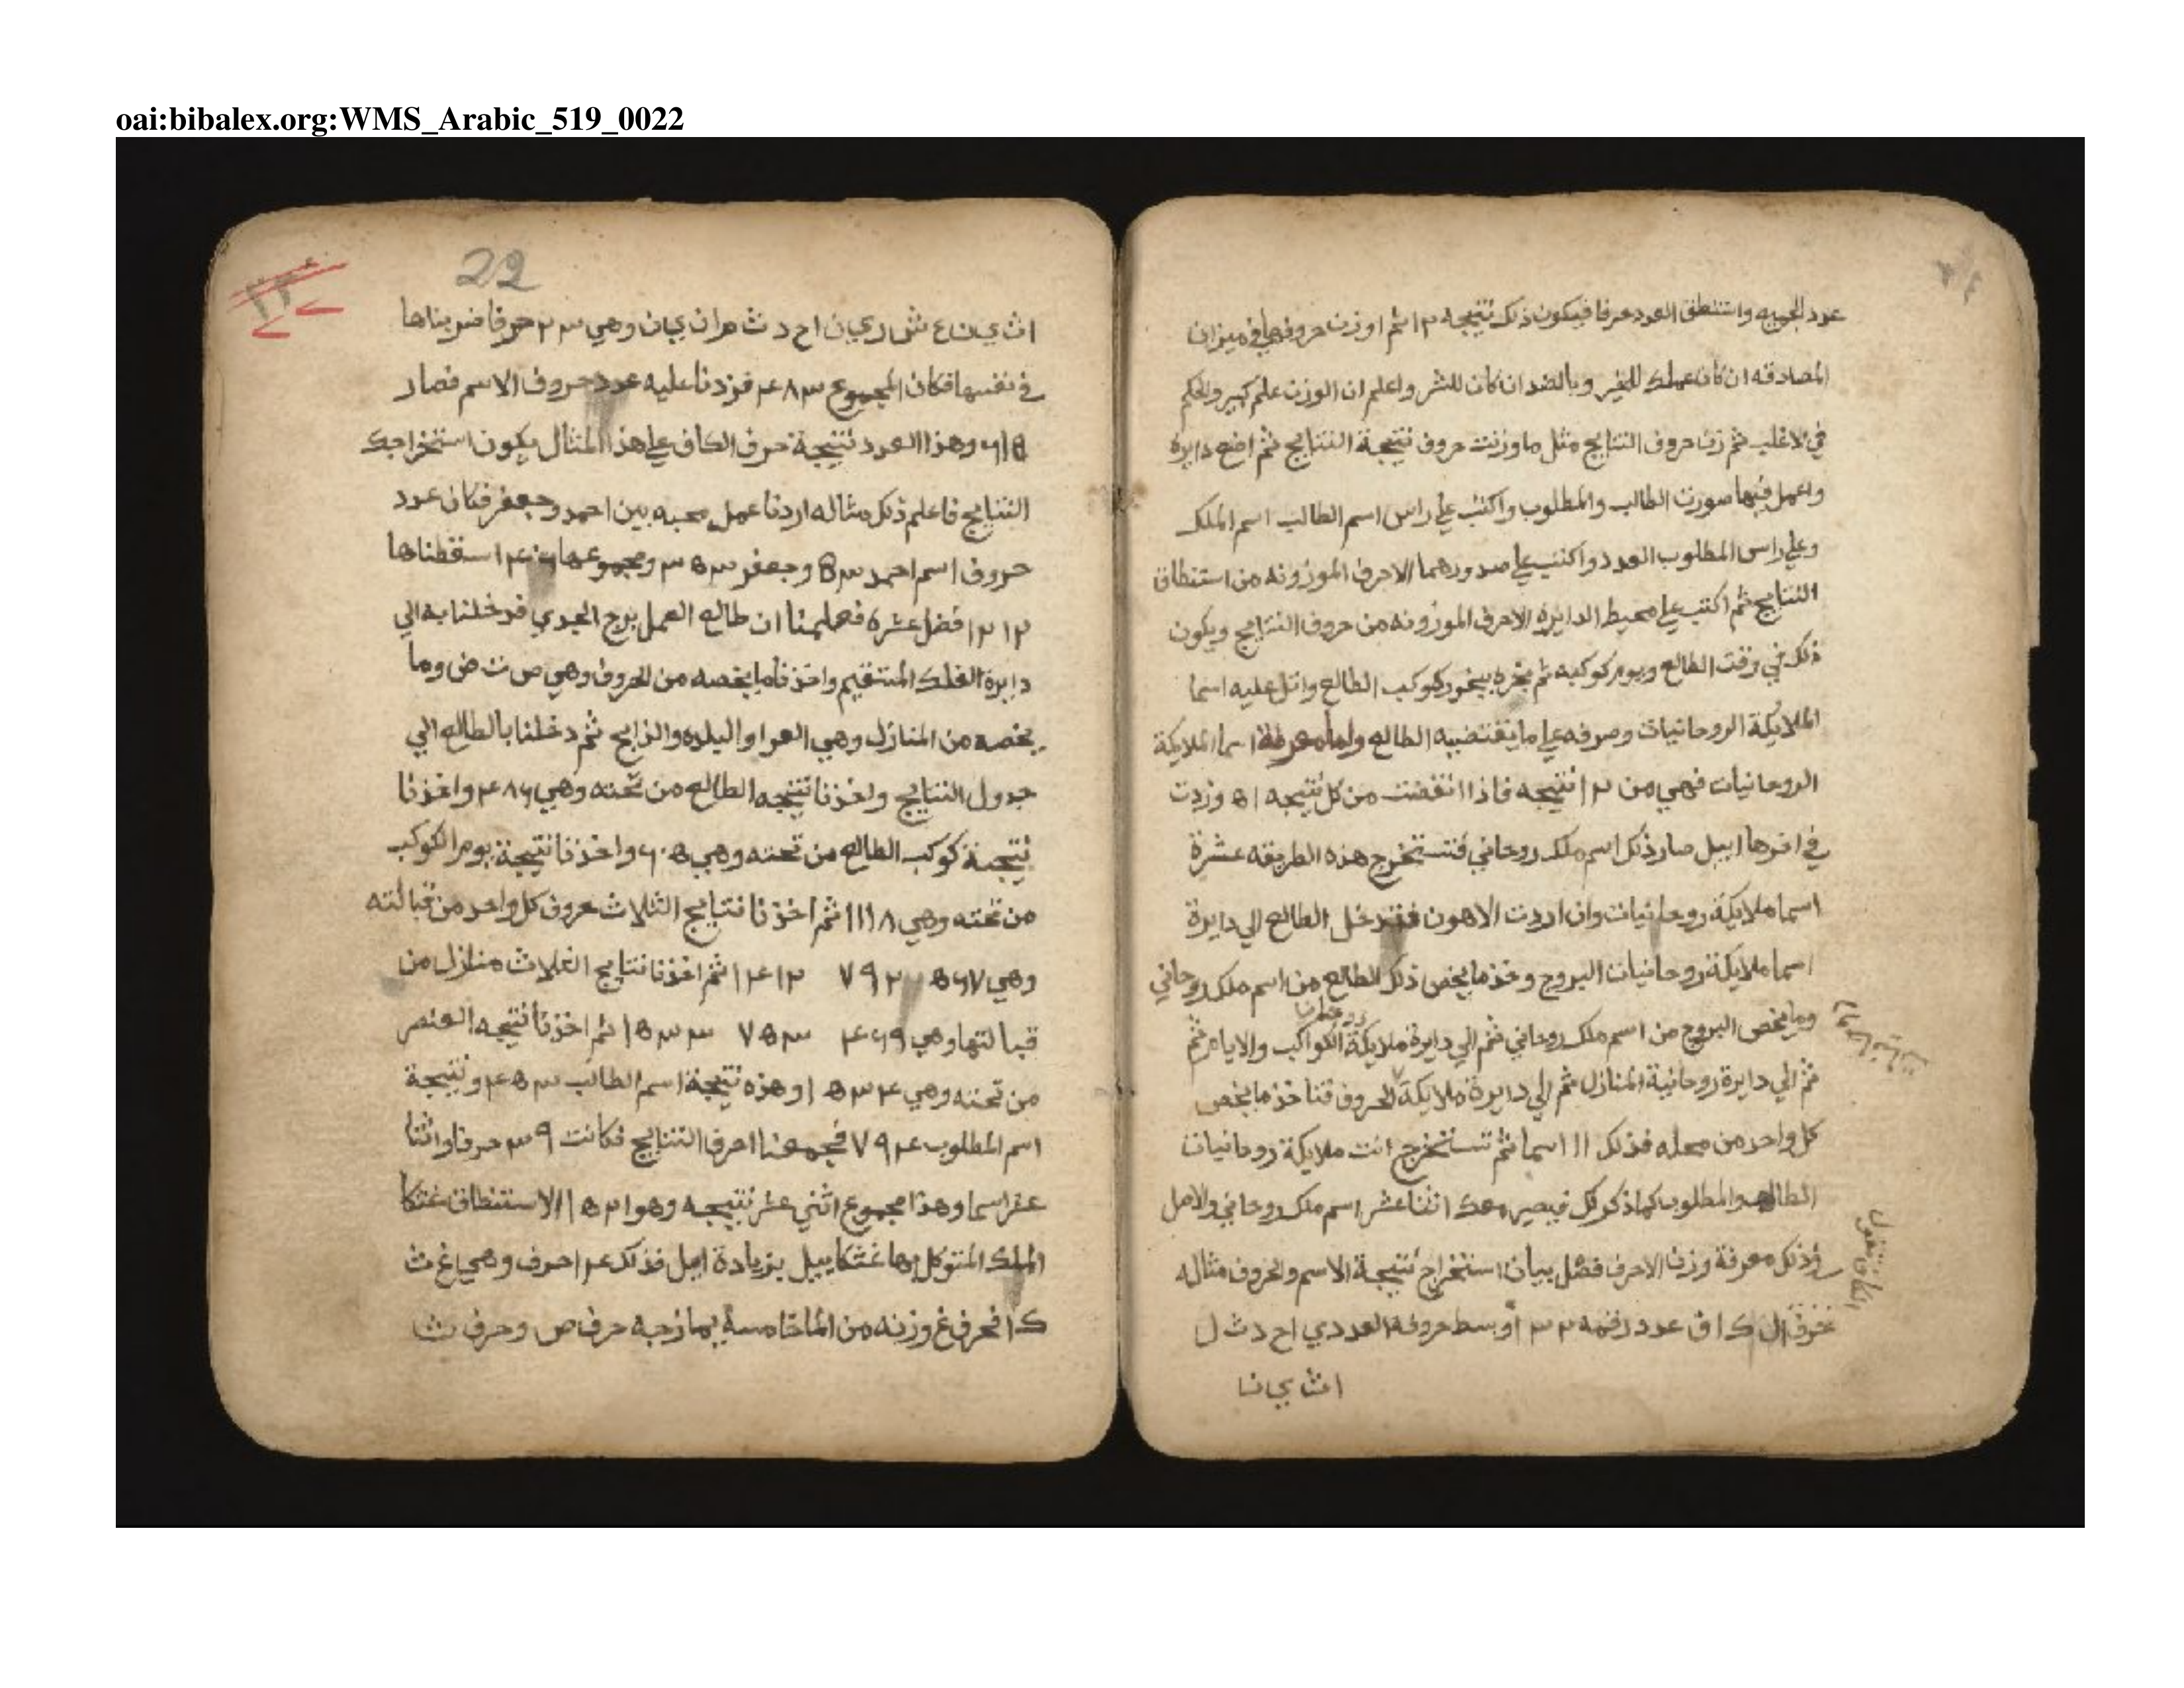 oai:bibalex.org:WMS_Arabic_519_0022
عدد الجميع واستنطق العدد حرفا فيكون ذلك نتيجه ١٢ ثم اوزن حروفها في ميزان
المصادقه ان كان عملك للخير وبالضد ان كان للشر واعلم ان الوزن علم كبير والحكم
في الاغلب ثم زن حروف النتايج مثل ما وزنت حروف نتيجة النتايج ثم اضع دايره
واعمل فيها صورت الطالب والمطلوب واكتب علي راس اسم الطالب اسم الملك
وعلي راس المطلوب العدد واكتب علي صدورهما الاحرف الموزونه من استنطاق
النتايج ثم اكتب علي محيط الدايره الاحرف الموزونه من حروف النتايج ويكون
ذلك في وقت الطالع ويوم كوكبه ثم بخره ببخور كوكب الطالع واتل عليه اسما
الملايكة الروحانيات وصرفه علي ما يقتضيه الطالع واما معرفة اسما الملايكة
الروحانيات فهي من ١٢ نتيجه فاذا انقضت من كل نتيجه ٥١ وزدت
في اخرها اييل صار ذلك اسم ملك روحاني فتستخرج هذه الطريقه عشرة
اسما ملايكة روحانيات وان اردت الاهون فتدخل الطالع الي دايرة
اسما ملايكة روحانيات البروج وخذ ما يخص ذلك الطالع من اسم ملك روحاني
وما يخص البروج من اسم ملك روحاني ثم الي دايرة ملايكة الكواكب والايام ثم
ثم الي دايرة روحانية المنازل ثم الي دايرة ملايكة الحروف فتاخذ ما يخص
كل واحد من محله فذلك ١١ اسما ثم تستخرج انت ملايكة روحانيات
الطالب والمطلوب كما ذكر لك فيصير معك اثنا عشر اسم ملك روحاني والاصل
في ذلك معرفة وزن الاحرف فصل بيان استخراج نتيجة الاسم والحروف مثاله
فحرف ال ك ا ف عدد رقمه ١٣٢ وبسط حروفه العددي ا ح د ث ل
ا ث ي ن
22
ا ث ي ن ع ش ر ي ن ا ح د ث م ا ن ي ن وهي ٢٢ حرفا ضربناها
في نفسها فكان المجموع ٤٨٤ فزدنا عليه عدد حروف الاسم فصار
٦١٥ وهذا العدد نتيجة حرف الكاف علي هذا المثال يكون استخراجك
النتايج فاعلم ذلك مثاله اردنا عمل محبه بين احمد وجعفر فكان عدد
حروف اسم احمد ٥٣ وجعفر ٣٥٣ ومجموعها ٤٠٦ اسقطناها
١٢ ١٢ فضل عشره فعلمنا ان طالع العمل برج الجدي فدخلنا به الي
دايرة الفلك المستقيم واخذنا ما يخصه من الحروف وهي ص ث ض وما
يخصه من المنازل وهي العوا والبلده والذابح ثم دخلنا بالطالع الي
جدول النتايج واخذنا نتيجه الطالع من تحته وهي ٤٨٦ واخذنا
نتيجة كوكب الطالع من تحته وهي ٦٠٥ واخذنا نتيجة يوم الكوكب
من تحته وهي ١١١٨ ثم اخذنا نتايج الثلاث حروف كل واحد من قبالته
وهي ٥٦٧ ٧٩٢ ١٢٤١ ثم اخذنا نتايج الثلاث منازل من
قبالتها وهي ٤٦٩ ٧٥٣ ١٥٣٣ ثم اخذنا نتيجه العنصر
من تحته وهي ١٥٣٤ وهذه نتيجة اسم الطالب ٤٥٣ ونتيجة
اسم المطلوب ٧٩٤ فجمعنا احرف النتايج فكانت ٣٩ حرفا واثنا
عشر اسما وهذا مجموع اثني عشر نتيجه وهو الاستنطاق غثكا
الملك المتوكل بها غثكاييل بزيادة اييل فذلك ٤ احرف وهي غ ث
ك ا فحرف غ وزنه من الماخامسة يمازجه حرف ص وحرف ث